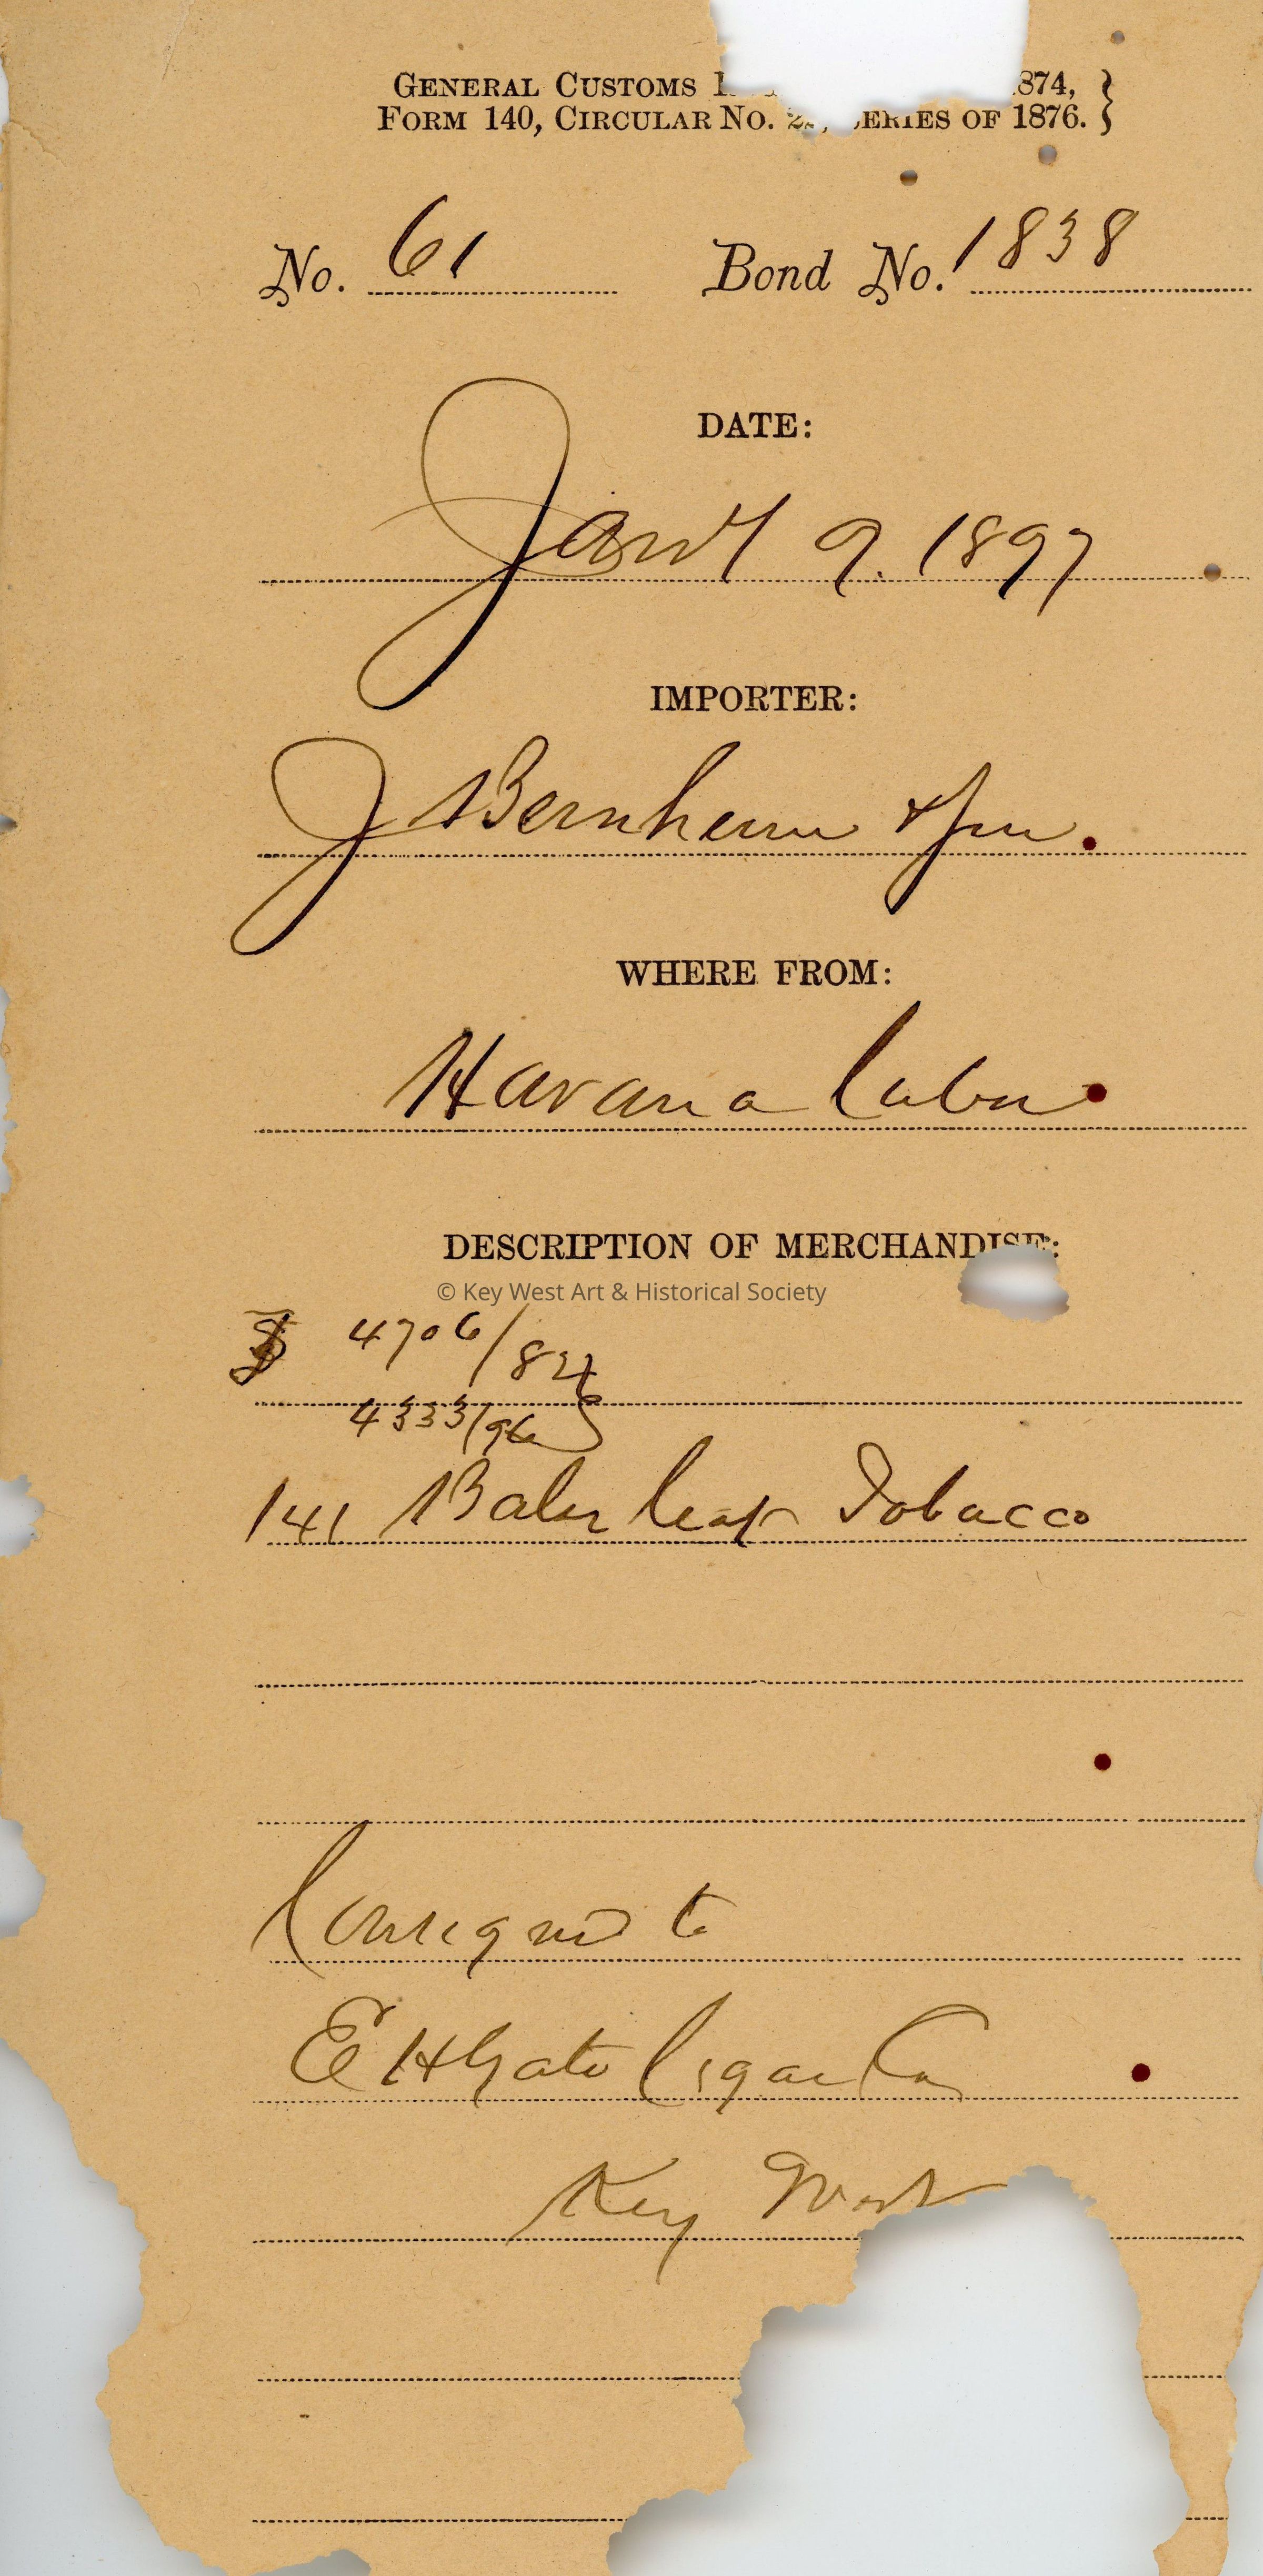 GENERAL CUSTOMS 1874,
FORM 140, CIRCULAR NO. SERIES OF 1876.
No. 61 Bond No. 1838
DATE:
Jany 9. 1897
IMPORTER:
J Bernheim & Son.
WHERE FROM:
Havana Cuba
DESCRIPTION OF MERCHANDISE:
© Key West Art & Historical Society
4706/82
4333/96
141 Bales leaf Tobacco
Consigned to
E H Gato Cigar Co
Key West